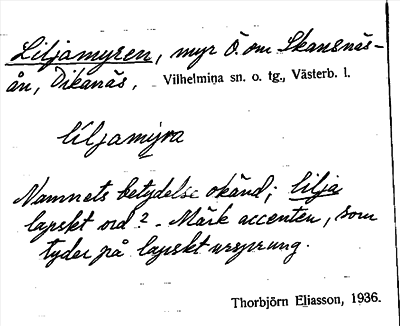 Liljamyren, myr Ö. om Skansnäs-
ån, Dikanäs, Vilhelmina sn. o. tg., Västerb. l.
líljamyra
Namnets betydelse okänd; lilja
lapskt ord? - Märk accenten, som
tyder på lapskt ursprung.
Thorbjörn Eliasson, 1936.